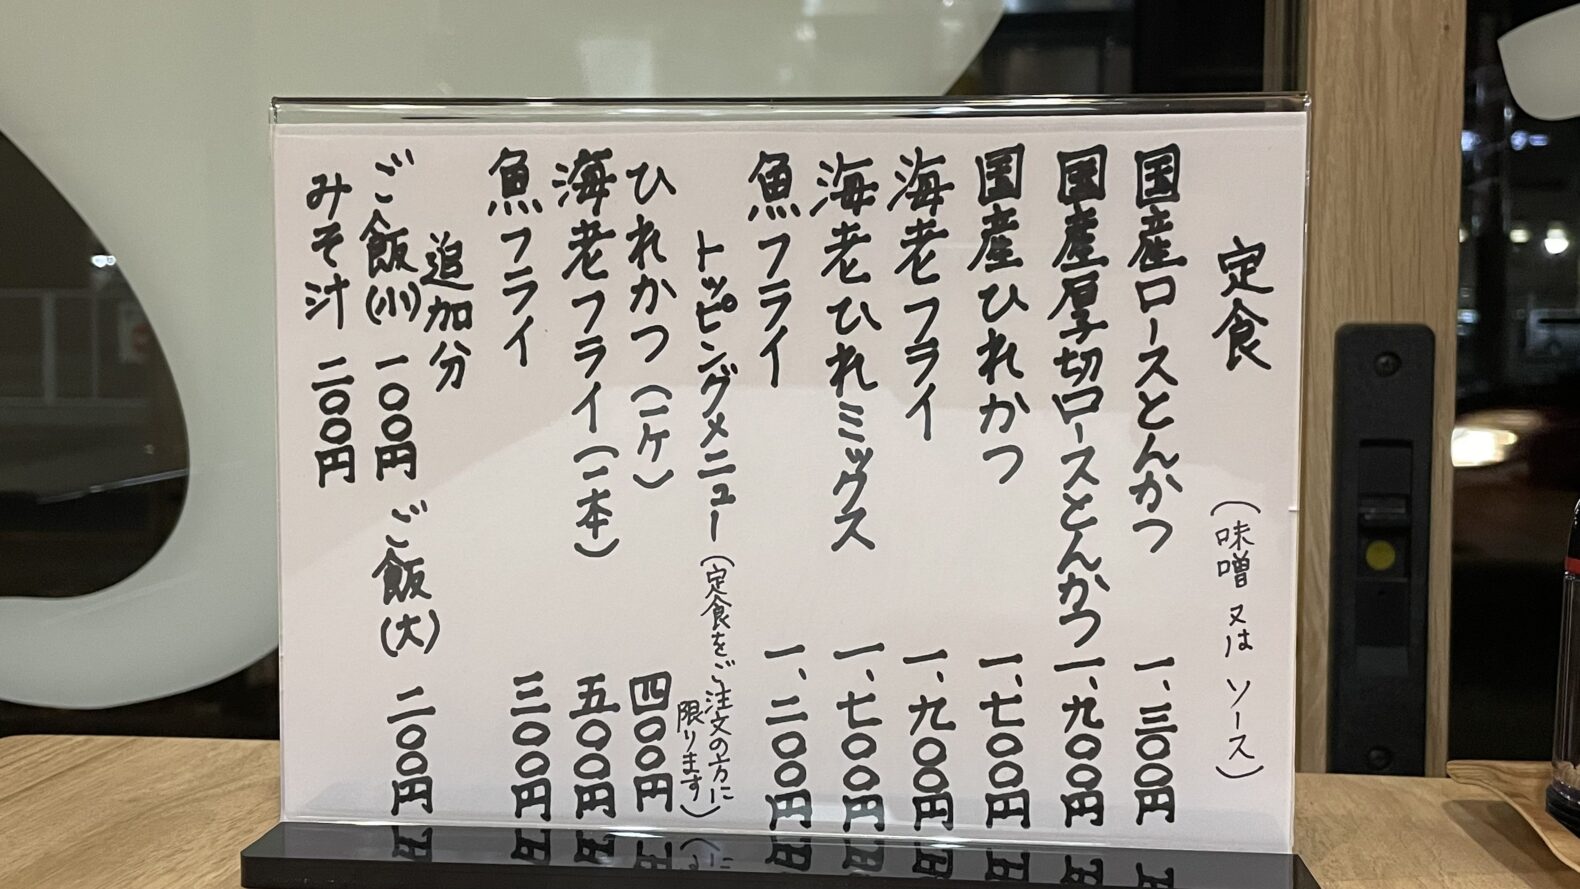 定食 （味噌 又は ソース）
国産ロースとんかつ 一、三〇〇円
国産厚切ロースとんかつ 一、九〇〇円
国産ひれかつ 一、七〇〇円
海老フライ 一、九〇〇円
海老ひれミックス 一、七〇〇円
魚フライ 一、二〇〇円
トッピングメニュー（定食をご注文の方に
限ります）
ひれかつ（二ケ） 四〇〇円
海老フライ（二本） 五〇〇円
魚フライ 三〇〇円
追加分
ご飯（小） 一〇〇円 ご飯（大） 二〇〇円
みそ汁 二〇〇円